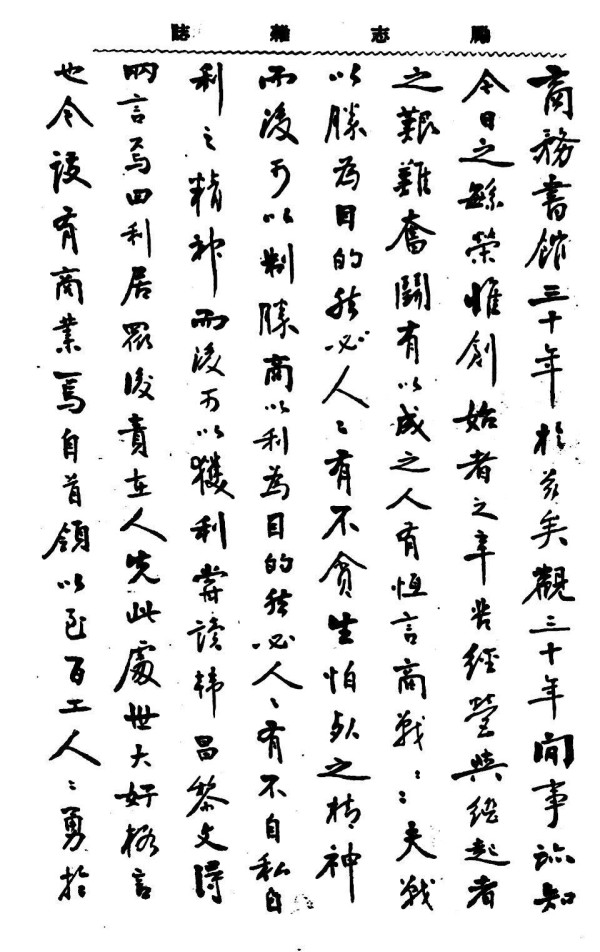 勵志雜誌
商務書館三十年於茲矣觀三十年間事跡知
今日之繁榮惟創始者之辛苦經營與繼起者
之艱難奮鬪有以成之人有恒言商戰〻〻夫戰
以勝為目的然必人〻有不貪生怕死之精神
而後可以制勝商以利為目的然必人〻有不自私自
利之精神而後可以獲利嘗讀韓昌黎文得
兩言焉曰利居眾後責在人先此處世大好格言
也今設有商業焉自首領以至百工人〻勇於